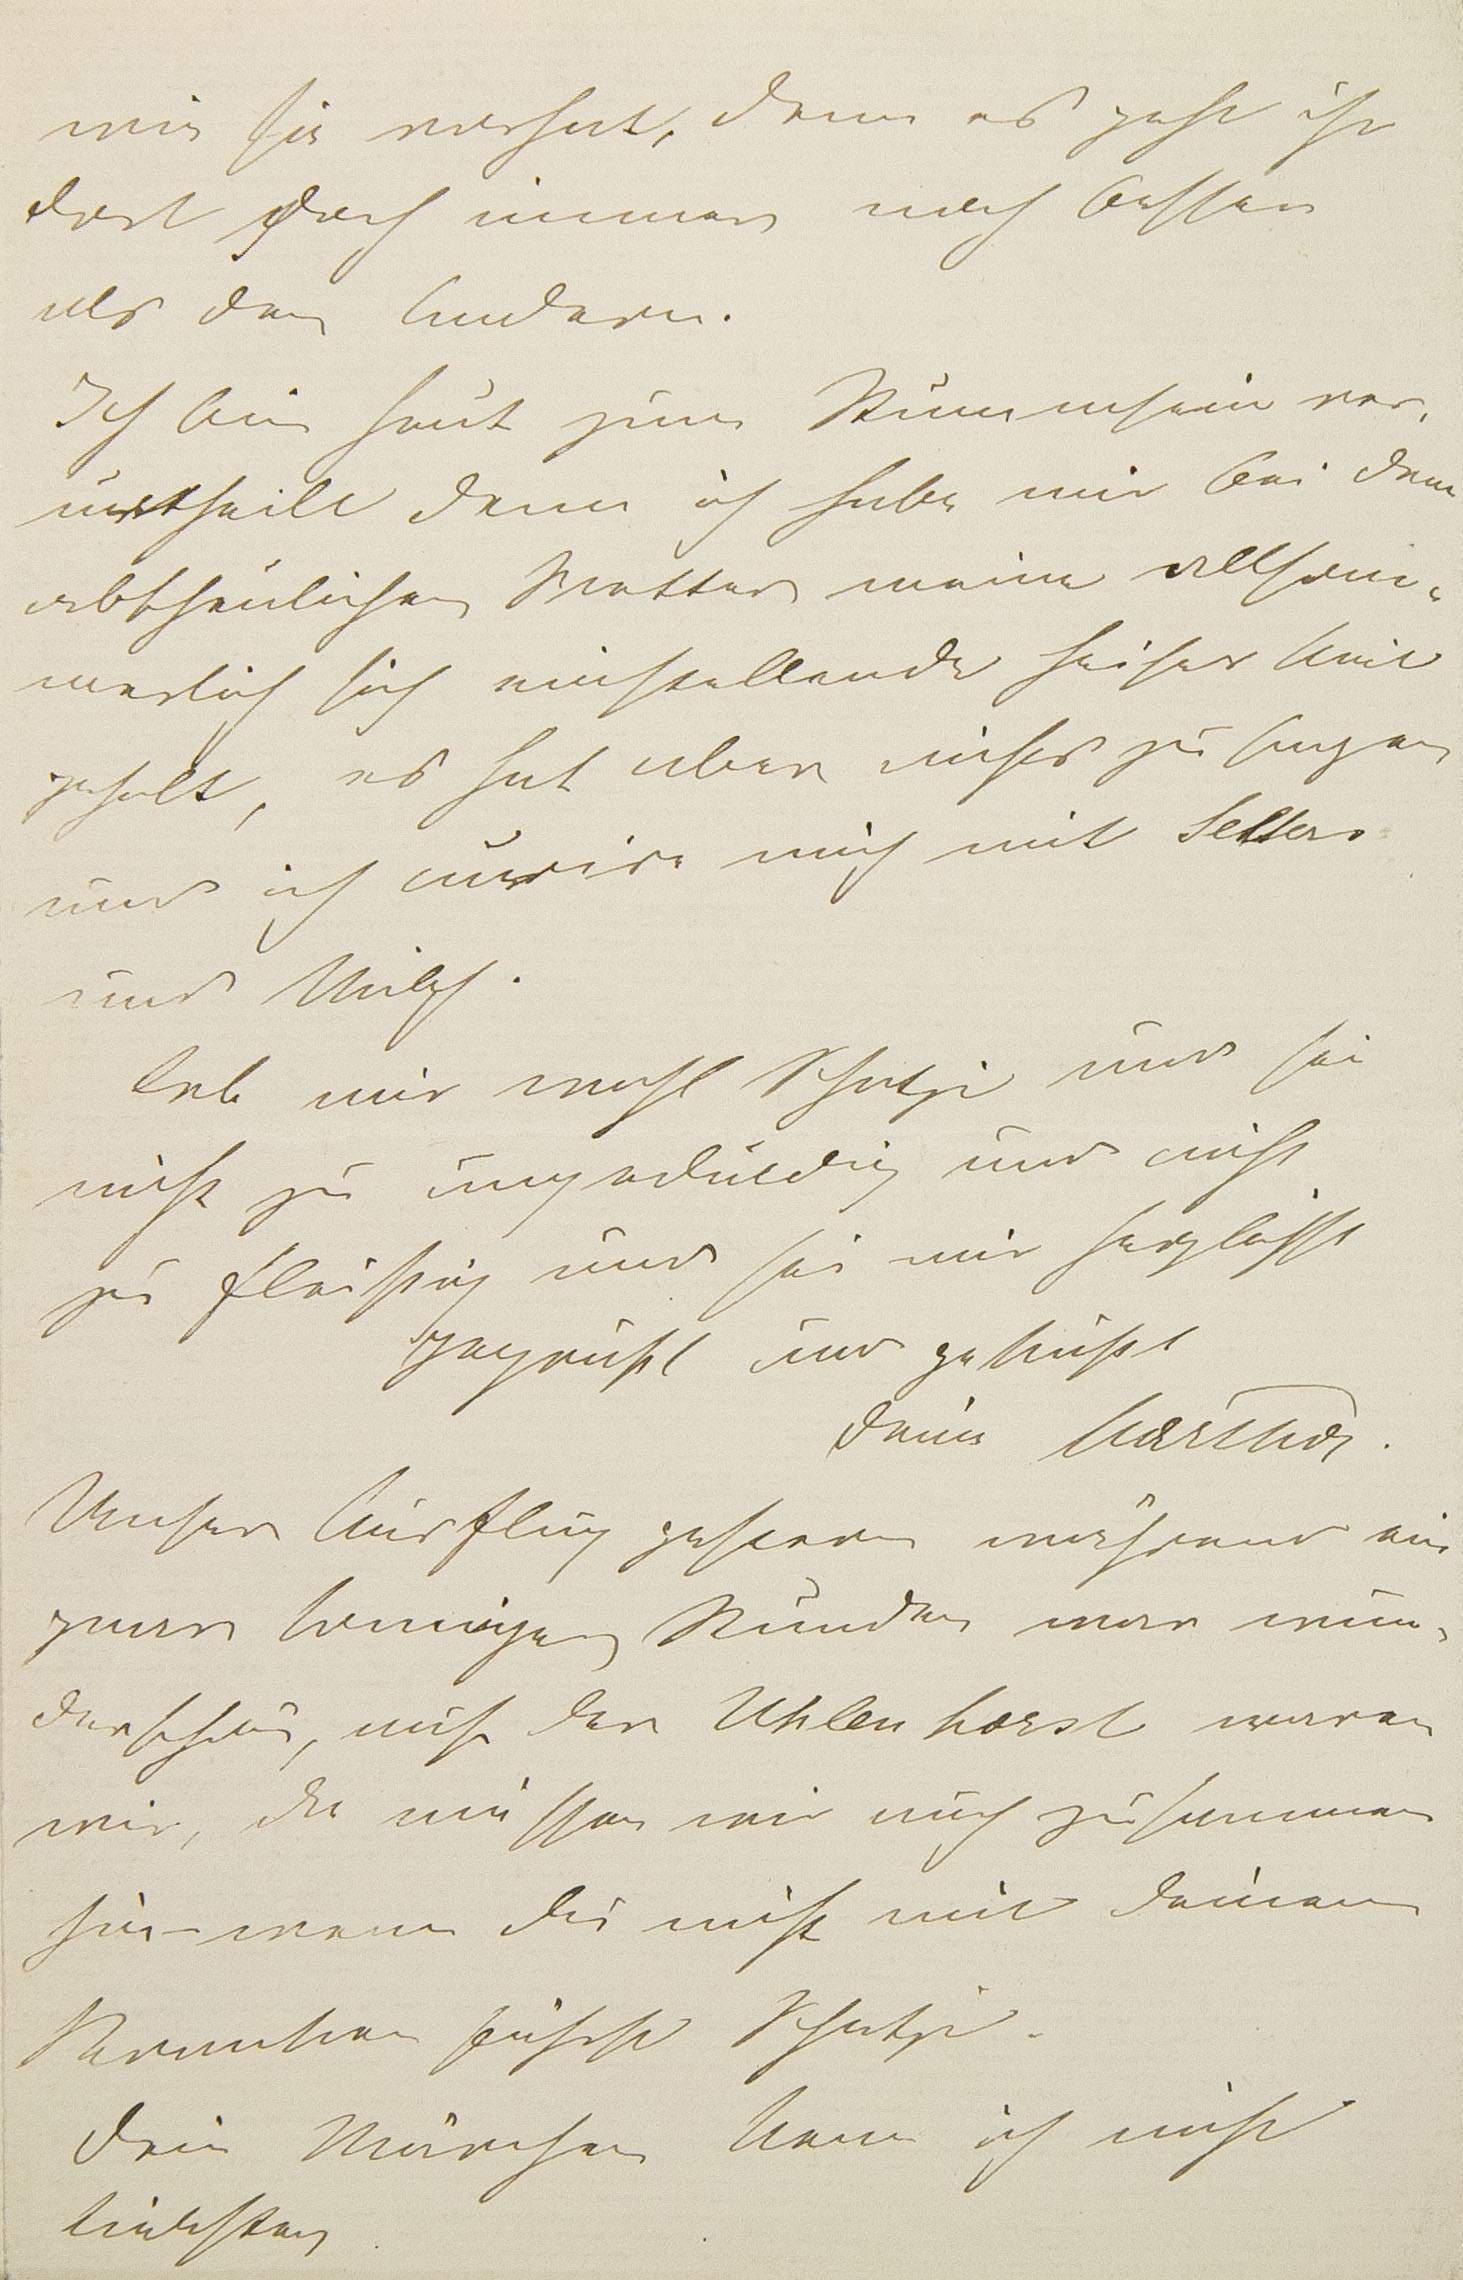 wie sie versult, denn es geht ihr
dort doch immer noch besser
als den Andern.
Ich bin heut zum Stummsein ver-
urtheilt denn ich habe mir bei dem
abscheulichen Wetter meine allsom-
merlich sich einstellende Heiserkeit
geholt, es hat aber nichts zu sagen
und ich curire mich mit Selters
und Milch.
Leb mir wohl Schatzi und sei
nicht zu ungeduldig und nicht
zu fleißig und sei mir herzlichst
gegrüßt und geküßt
Dein
Unser Ausflug gestern während ein
paar sonnigen Stunden war wun-
derschön, auf der Uhlenhorst waren
wir, da müssen wir auch zusammen
hin – wenn du nicht mit deinen
Kranken fährst Schatzi.
Dein Märchen kenn ich nicht
Liebsten